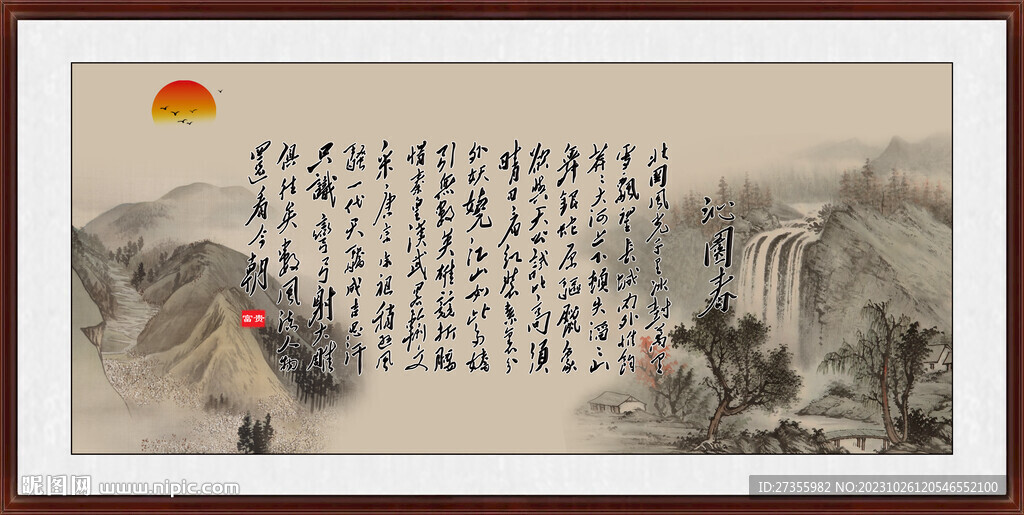 沁園春
北国风光千里冰封萬里
雪飘望长城内外惟馀
莽莽大河上下顿失滔滔山
舞银蛇原驱腊象
欲与天公试比高须
晴日看红装素裹分
外妖娆江山如此多娇
引无数英雄競折腰
惜秦皇漢武略输文
采唐宗宋祖稍逊风
骚一代天骄成吉思汗
只識弯弓射大雕
俱往矣数风流人物
還看今朝
富贵
昵图网 www.nipic.com
ID:27355982 NO:20231026120546552100